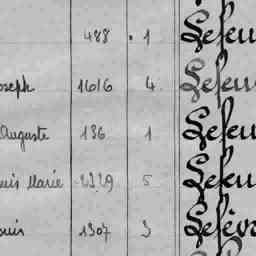 488 . 1 Lefeu
oseph 1616 4 Lefeu
Auguste 136 1 Lefeu
uis Marie 2329 5 Lefeu
ouis 1307 3 Lefèv